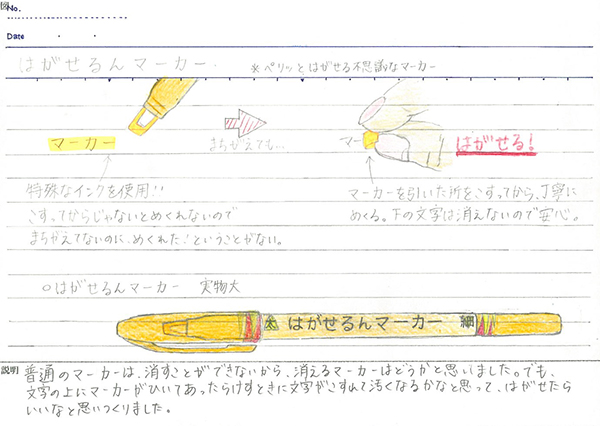 図
No.
Date
はがせるんマーカー.
※ペリッとはがせる不思議なマーカー
マーカー
まちがえても…
マー
はがせる!
特殊なインクを使用!!
こすってからじゃないとめくれないので
まちがえてないのに、めくれた!ということがない。
マーカーを引いた所をこすってから、丁寧に
めくる。下の文字は消えないので安心。
○はがせるんマーカー 実物大
太 はがせるんマーカー 細
説明 普通のマーカーは、消すことができないから、消えるマーカーはどうかと思いました。でも、
文字の上にマーカーがひいてあったらけすときに文字がこすれて汚くなるかなと思って、はがせたら
いいなと思いつくりました。